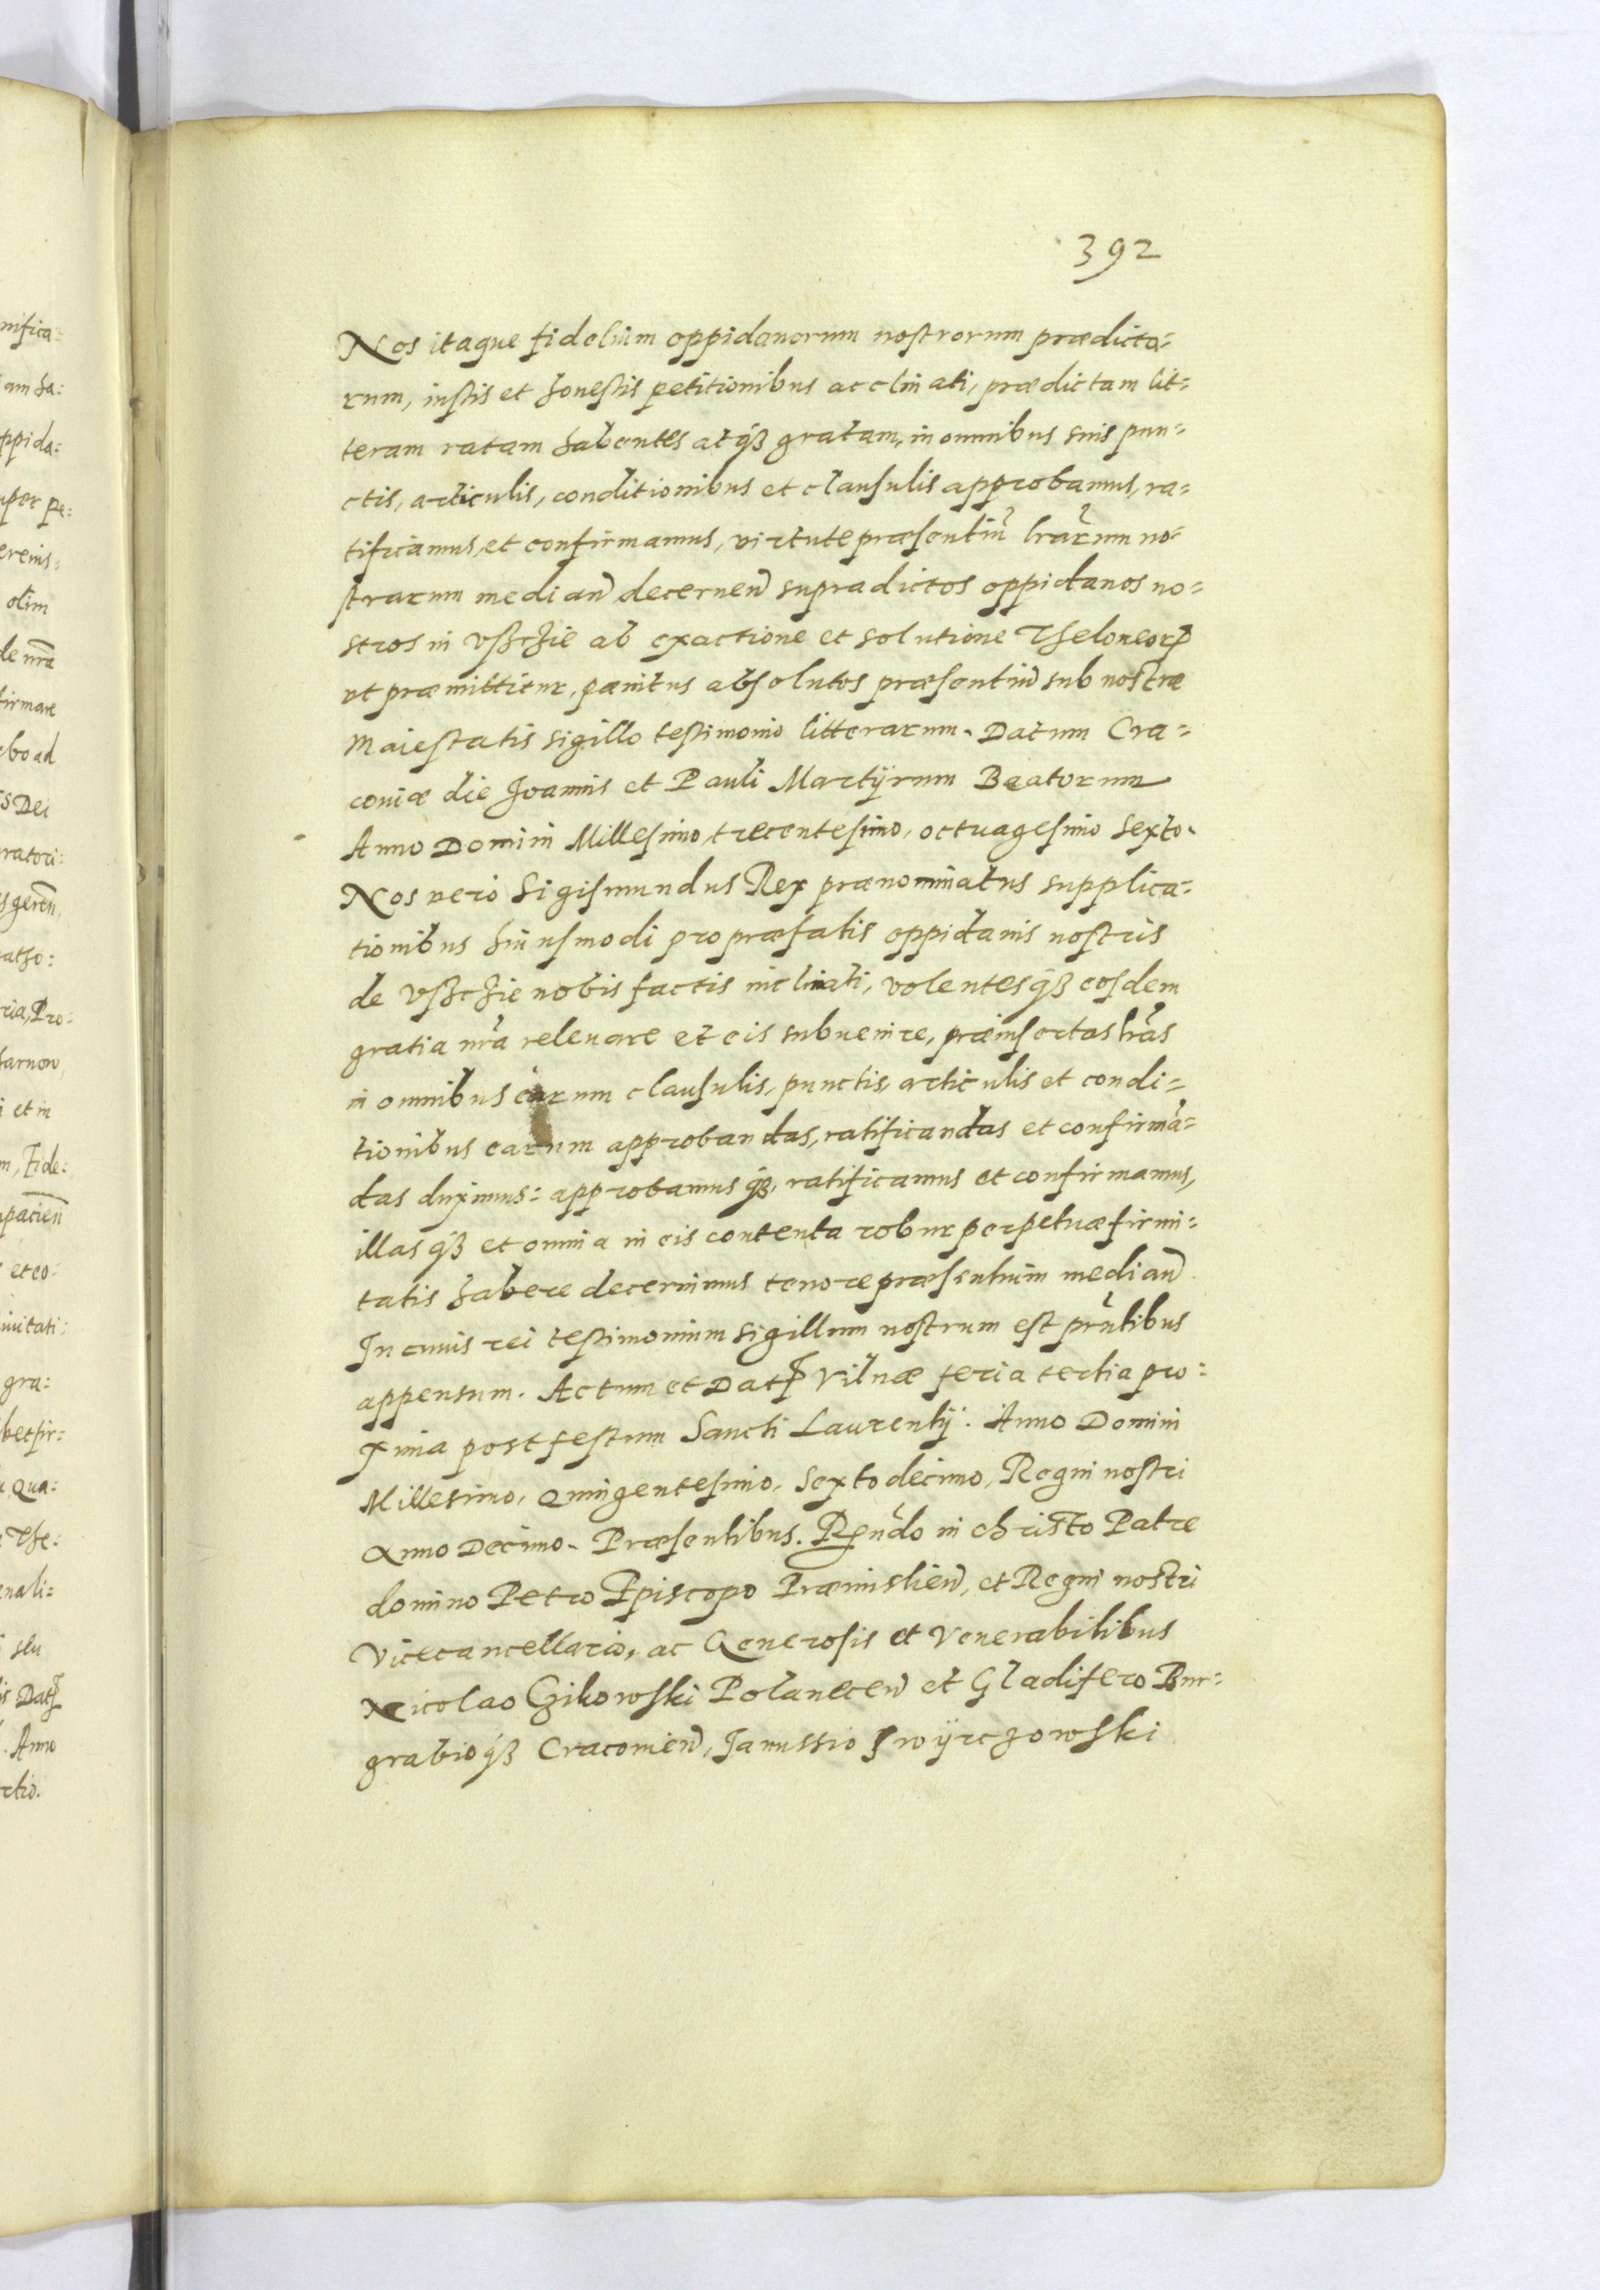 392
Nos itaque fidelium oppidanorum nostrorum prædicto-
rum, iustis et honestis petitionibus acclinati, prædictam lit-
teram ratam habentes atq3 gratam, in omnibus suis pun-
ctis, articulis, conditionibus et clausulis approbamus, ra-
tificamus, et confirmamus, virtute præsentiũ lr̃arum no-
strarum median̄ decernen̄ supradictos oppidanos no-
stros in Vschzie ab exactione et solutione Theloneorꝝ
ut præmittitur, pænitus absolutos præsentiũ sub nostræ
Maiestatis sigillo testimonio litterarum. Datum Cra-
coviæ die Joannis et Pauli Martÿrum Beatorum
Anno Domini Millesimo, trecentesimo, octuagesimo Sexto.
Nos vero Sigismundus Rex prænominatus supplica-
tionibus huiusmodi pro præfatis oppidanis nostris
de Vschzie nobis factis inclinati, volentesq3 eosdem
gratia nr̃a relevare et eis subvenire, præinsertas lr̃as
in omnibus earum clausulis, punctis, articulis et condi-
tionibus earum approbandas, ratificandas et confirmã-
das duximus: approbamusq3, ratificamus et confirmamus,
illasq3 et omnia in eis contenta robur perpetuæ firmi-
tatis habere decernimus tenore præsentium median̄
In cuius rei testimonium sigillum nostrum est pr̃ntibus
appensum. Actum et Datꝭ Vilnæ feria tertia pro-
xima post festum Sancti Laurentij. Anno Domini
Millesimo, Quingentesimo, Sexto decimo, Regni nostri
Anno Decimo. Præsentibus. Rn̄do in christo Patre
domino Petro Episcopo Præmislien̄, et Regni nostri
Vicecancellario, ac Generosis et Venerabilibus
Nicolao Czikowski Polanecen̄ et Gladifero Bur-
grabioq3 Cracovien̄, Janussio Swÿrczowski